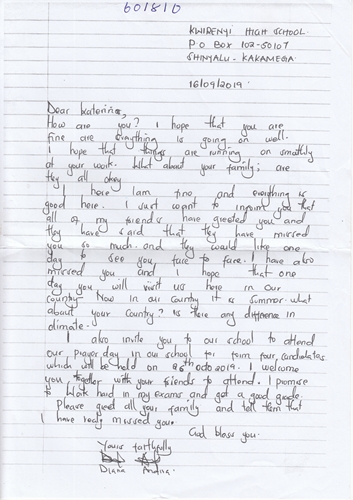 601810
KWIRENYI HIGH SCHOOL
P.O BOX 102-50107
SHINYALU - KAKAMEGA.
16/09/2019.
Dear Kateřina,
How are you? I hope that you are
fine and everything is going on well.
I hope that things are running on smothly
at your work. What about your family; are
they all okey
I here Iam fine and everything is
good here. I just want to inform you that
all of my friends have greeted you and
they have said that they have missed
you so much. and they would like one
day to see you face to face. I have also
missed you and I hope that one
day you will visit us here in our
country. Now in our country it is summer. what
about your country? Is there any difference in
climate.
I also invite you to our school to attend
our prayer day in our school for form four candidates
which will be held on 26th Oct 2019. I welcome
you together with your friends to attend. I promise
to Work hard in my exams and get a good grade.
Please greet all your family and tell them that
I have realy missed you.
God bless you.
Yours faithfully
Diana